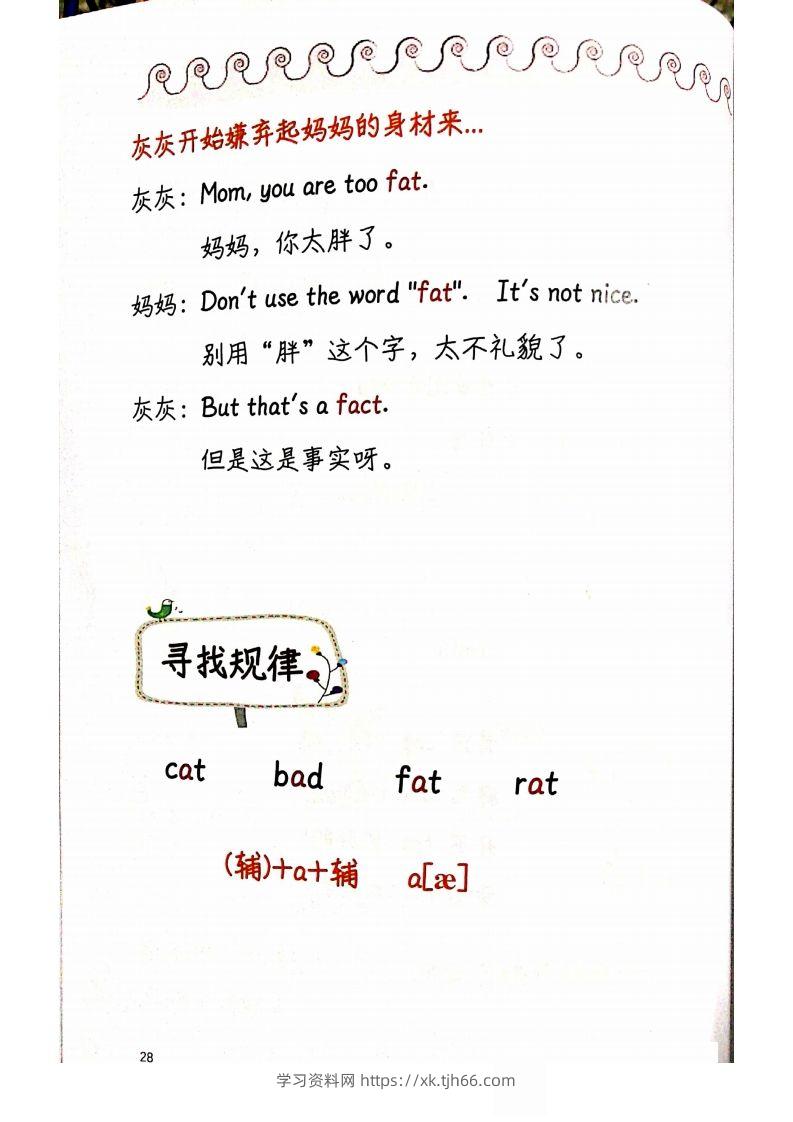 灰灰开始嫌弃起妈妈的身材来...
灰灰：Mom, you are too fat.
妈妈，你太胖了。
妈妈：Don't use the word "fat". It's not nice.
别用“胖”这个字，太不礼貌了。
灰灰：But that's a fact.
但是这是事实呀。
寻找规律
cat bad fat rat
(辅)+a+辅 a[æ]
28
学习资料网 https://xk.tjh66.com